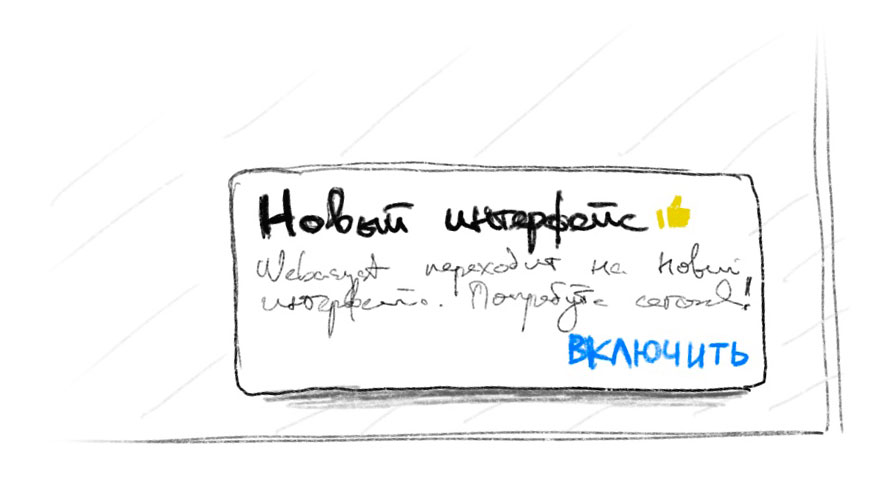 Новый интерфейс
Webasyst переходит на новый
интерфейс. Попробуйте сегодня!
ВКЛЮЧИТЬ